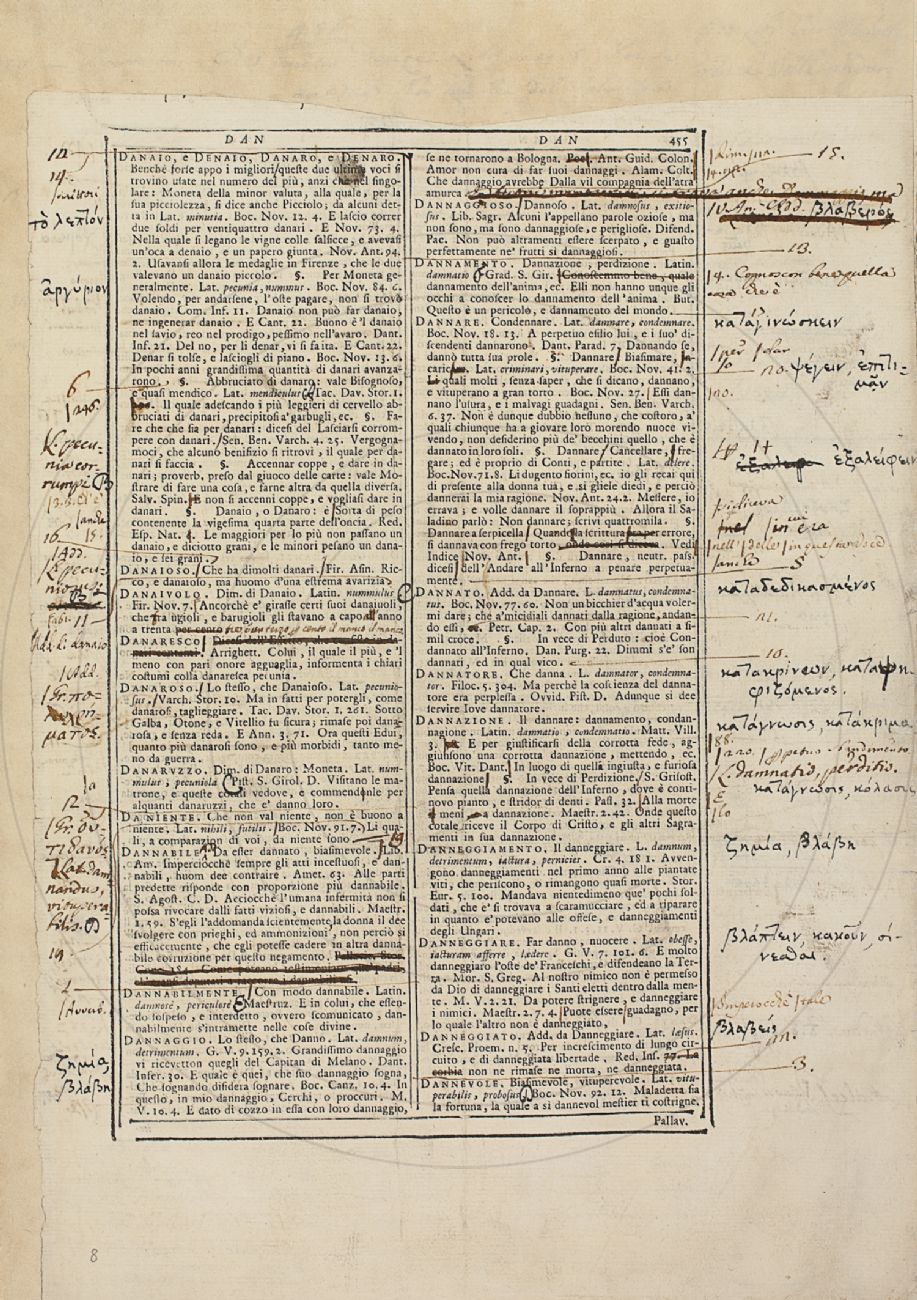 DAN
DAN 455
DANAIO, e DENAIO, DANARO, e DENARO.
Benchè forse appo i migliori queste due ultime voci si
trovino usate nel numero del più, anzi che nel singo-
lare: Moneta della minor valuta, alla quale, per la
sua picciolezza, si dice anche Picciolo; da alcuni det-
ta in Lat. minutia. Boc. Nov. 12. 4. E lascio correr
due soldi per ventiquattro danari. E Nov. 73. 4.
Nella quale si legano le vigne colle salsicce, e avevasi
un'oca a denaio, e un papero giunta. Nov. Ant. 94.
2. Usavansi allora le medaglie in Firenze, che le due
valevano un danaio piccolo. §. Per Moneta ge-
neralmente. Lat. pecunia, nummus. Boc. Nov. 84. 6.
Volendo, per andarsene, l'oste pagare, non si trovò
danaio. Com. Inf. 11. Danaio non può far danaio,
ne ingenerar danaio. E Cant. 22. Buono è 'l danaio
nel savio, reo nel prodigo, pessimo nell'avaro. Dant.
Inf. 21. Del no, per li denar, vi si faita. E Cant. 22.
Denar si tolse, e lasciogli di piano. Boc. Nov. 13. 6.
In pochi anni grandissima quantità di danari avanza-
rono. §. Abbruciato di danaro: vale Bisognoso,
e quasi mendico. Lat. mendiculus Tac. Dav. Stor. 1.
Il quale adescando i più leggieri di cervello ab-
bruciati di danari, precipitosi a' garbugli, ec. §. Fa-
re che che sia per danari: dicesi del Lasciarsi corrom-
pere con danari. Sen. Ben. Varch. 4. 25. Vergogna-
moci, che alcuno benifizio si ritrovi, il quale per da-
nari si faccia. §. Accennar coppe, e dare in da-
nari; proverb. preso dal giuoco delle carte: vale Mo-
strare di fare una cosa, e farne altra da quella diversa.
Salv. Spin. E non si accenni coppe, e vogliasi dare in
danari. §. Danaio, o Danaro: è Sorta di peso
contenente la vigesima quarta parte dell'oncia. Red.
Esp. Nat. 4. Le maggiori per lo più non passano un
danaio, e diciotto grani, e le minori pesano un dana-
io, e sei grani.
DANAIOSO. Che ha dimolti danari. Fir. Asin. Ric-
co, e danaioso, ma huomo d'una estrema avarizia.
DANAIVOLO. Dim. di Danaio. Latin. nummulus
Fir. Nov. 7. Ancorchè e' girasse certi suoi danaiuoli,
che fra ugioli, e barugioli gli stavano a capo all'anno
a trenta per cento
DANARESCO.
Arrighett. Colui, il quale il più, e 'l
meno con pari onore agguaglia, informenta i chiari
costumi colla danaresca pecunia.
DANAROSO. Lo stesso, che Danaioso. Lat. pecunio-
sus. Varch. Stor. 10. Ma in fatti per potergli, come
danarosi, taglieggiare. Tac. Dav. Stor. 1. 261. Sotto
Galba, Otone, e Vitellio fu sicura; rimase poi dana-
rosa, e senza reda. E Ann. 3. 71. Ora questi Edui,
quanto più danarosi sono, e più morbidi, tanto me-
no da guerra.
DANARUZZO. Dim. di Danaro: Moneta. Lat. num-
mulus, pecuniola Pist. S. Girol. D. Visitano le ma-
trone, e queste cotali vedove, e commendonle per
alquanti danaruzzi, che e' danno loro.
DA NIENTE. Che non val niente, non è buono a
niente. Lat. nihili, futilis. Boc. Nov. 91. 7. Li qua-
li, a comparazion di voi, da niente sono
DANNABILE. Da esser dannato, biasimevole. Lib.
Am. Imperciocchè sempre gli atti incestuosi, e dan-
nabili, huom dee contraire. Amet. 63. Alle parti
predette risponde con proporzione più dannabile.
S. Agost. C. D. Acciocchè l'umana infermità non si
possa rivocare dalli fatti viziosi, e dannabili. Maestr.
1. 59. S'egli l'addomanda scientemente, la donna il dee
svolgere con prieghi, ed ammonizioni, non perciò sì
efficacemente, che egli potesse cadere in altra danna-
bile corruzione per questo negamento.
DANNABILMENTE. Con modo dannabile. Latin.
damnosè, periculosè Maestruz. E in colui, che essen-
do sospeso, e interdetto, ovvero scomunicato, dan-
nabilmente s'intramette nelle cose divine.
DANNAGGIO. Lo stesso, che Danno. Lat. damnum,
detrimentum. G. V. 9. 159. 2. Grandissimo dannaggio
vi ricevetton quegli del Capitan di Melano. Dant.
Infer. 30. E quale è quei, che suo dannaggio sogna,
Che sognando disidera sognare. Boc. Canz. 10. 4. In
questo, in mio dannaggio, Cerchi, o proccuri. M.
V. 10. 4. E dato di cozzo in essa con loro dannaggio,
se ne tornarono a Bologna. Ant. Guid. Colon.
Amor non cura di far suoi dannaggi. Alam. Colt.
Che dannaggio avrebbe Dalla vil compagnia dell'atra
amurca
DANNAGGIOSO. Dannoso. Lat. damnosus, exitio-
sus. Lib. Sagr. Alcuni l'appellano parole oziose, ma
non sono, ma sono dannaggiose, e perigliose. Difend.
Pac. Non può altramenti essere scerpato, e guasto
perfettamente ne' frutti si dannaggiosi.
DANNAMENTO. Dannazione, perdizione. Latin.
damnatio Grad. S. Gir. Conoscemmo bene, quale
dannamento dell'anima, ec. Elli non hanno unque gli
occhi a conoscer lo dannamento dell'anima. But.
Questo è un pericolo, e dannamento del mondo.
DANNARE. Condennare. Lat. damnare, condemnare.
Boc. Nov. 18. 13. A perpetuo esilio lui, e i suo' di-
scendenti dannarono. Dant. Parad. 7. Dannando se,
dannò tutta sua prole. §. Dannare Biasimare,
Lat. criminari, vituperare. Boc. Nov. 41. 2.
Li quali molti, senza saper, che si dicano, dannano,
e vituperano a gran torto. Boc. Nov. 27. Essi dan-
nano l'usura, e i malvagi guadagni. Sen. Ben. Varch.
6. 37. Non è dunque dubbio nessuno, che costoro, a'
quali chiunque ha a giovare loro morendo nuoce vi-
vendo, non desiderino più de' becchini quello, che è
dannato in loro soli. §. Dannare Cancellare, fre-
gare; ed è proprio di Conti, e partite. Lat. delere.
Boc. Nov. 71. 8. Li dugento fiorini, ec. io gli recai qui
di presente alla donna tua, e sì gliele diedi, e perciò
dannerai la mia ragione. Nov. Ant. 24. 2. Messere, io
errava; e volle dannare il soprappiù. Allora il Sa-
ladino parlò: Non dannare; scrivi quattromila. §.
Dannare a serpicella Quando la scrittura fra per errore,
si dannava con frego torto, onde così si diceva. Vedi
Indice Nov. Ant. §. Dannare, neutr. pass.
dicesi dell'Andare all'Inferno a penare perpetua-
mente.
DANNATO. Add. da Dannare. L. damnatus, condemna-
tus. Boc. Nov. 77. 60. Non un bicchier d'acqua voler-
mi dare; che a' micidiali dannati dalla ragione, andan-
do essi, ec. Petr. Cap. 2. Con più altri dannati a si-
mil croce. §. In vece di Perduto: cioè Con-
dannato all'Inferno. Dan. Purg. 22. Dimmi s'e' son
dannati, ed in qual vico.
DANNATORE. Che danna. L. damnator, condemna-
tor. Filoc. 5. 304. Ma perchè la coscienza del danna-
tore era perplessa. Ovvid. Pist. D. Adunque si dee
servire Iove dannatore.
DANNAZIONE. Il dannare: dannamento, condan-
nagione. Latin. damnatio, condemnatio. Matt. Vill.
3. E per giustificarsi della corrotta fede, ag-
giunsono una corrotta dannazione, mettendo, ec.
Boc. Vit. Dant. In luogo di quella ingiusta, e furiosa
dannazione §. In vece di Perdizione. S. Grisost.
Pensa quella dannazione dell'Inferno, dove è conti-
novo pianto, e stridor di denti. Pass. 32. Alla morte
e meni a dannazione. Maestr. 2. 42. Onde questo
cotale riceve il Corpo di Cristo, e gli altri Sagra-
menti in sua dannazione.
DANNEGGIAMENTO. Il danneggiare. L. damnum,
detrimentum, iactura, pernicies. Cr. 4. 18 1. Avven-
gono danneggiamenti nel primo anno alle piantate
viti, che periscono, o rimangono quasi morte. Stor.
Eur. 5. 100. Mandava nientedimeno que' pochi sol-
dati, che e' si trovava a scaramucciare, ed a riparare
in quanto e' potevano alle offese, e danneggiamenti
degli Ungari.
DANNEGGIARE. Far danno, nuocere. Lat. obesse,
iacturam afferre, lædere. G. V. 7. 101. 6. E molto
danneggiaro l'oste de' Franceschi, e difendeano la Ter-
ra. Mor. S. Greg. Al nostro nimico non è permesso
da Dio di danneggiare i Santi eletti dentro dalla men-
te. M. V. 2. 21. Da potere strignere, e danneggiare
i nimici. Maestr. 2. 7. 4. Puote essere guadagno, per
lo quale l'altro non è danneggiato,
DANNEGGIATO. Add. da Danneggiare. Lat. læsus.
Cresc. Proem. n. 5. Per increscimento di lungo cir-
cuito, e di danneggiata libertade. Red. Ins.
non ne rimase ne morta, ne danneggiata.
DANNEVOLE. Biasimevole, vitupervole. Lat. vitu-
perabilis, probosus Boc. Nov. 92. 12. Maladetta sia
la fortuna, la quale a sì dannevol mestier ti costrigne.
Pallav.
14.
τὸ λεπτόν
ἀργύριον
6
16
11
12
19
ζημία,
βλάβη
15.
βλάβερός
13.
καταγινώσκειν
ψέγειν, ἐπιτι-
μᾶν
ἐξαλείφειν
καταδεδικασμένος
10.
κατάγνωσις, κατάκριμα
damnatio, perditio.
κατάγνωσις, κόλασις
ζημία, βλάβη
βλάπτειν, κακοῦν, σί-
νεσθαι.
βλαβείς
3.
8